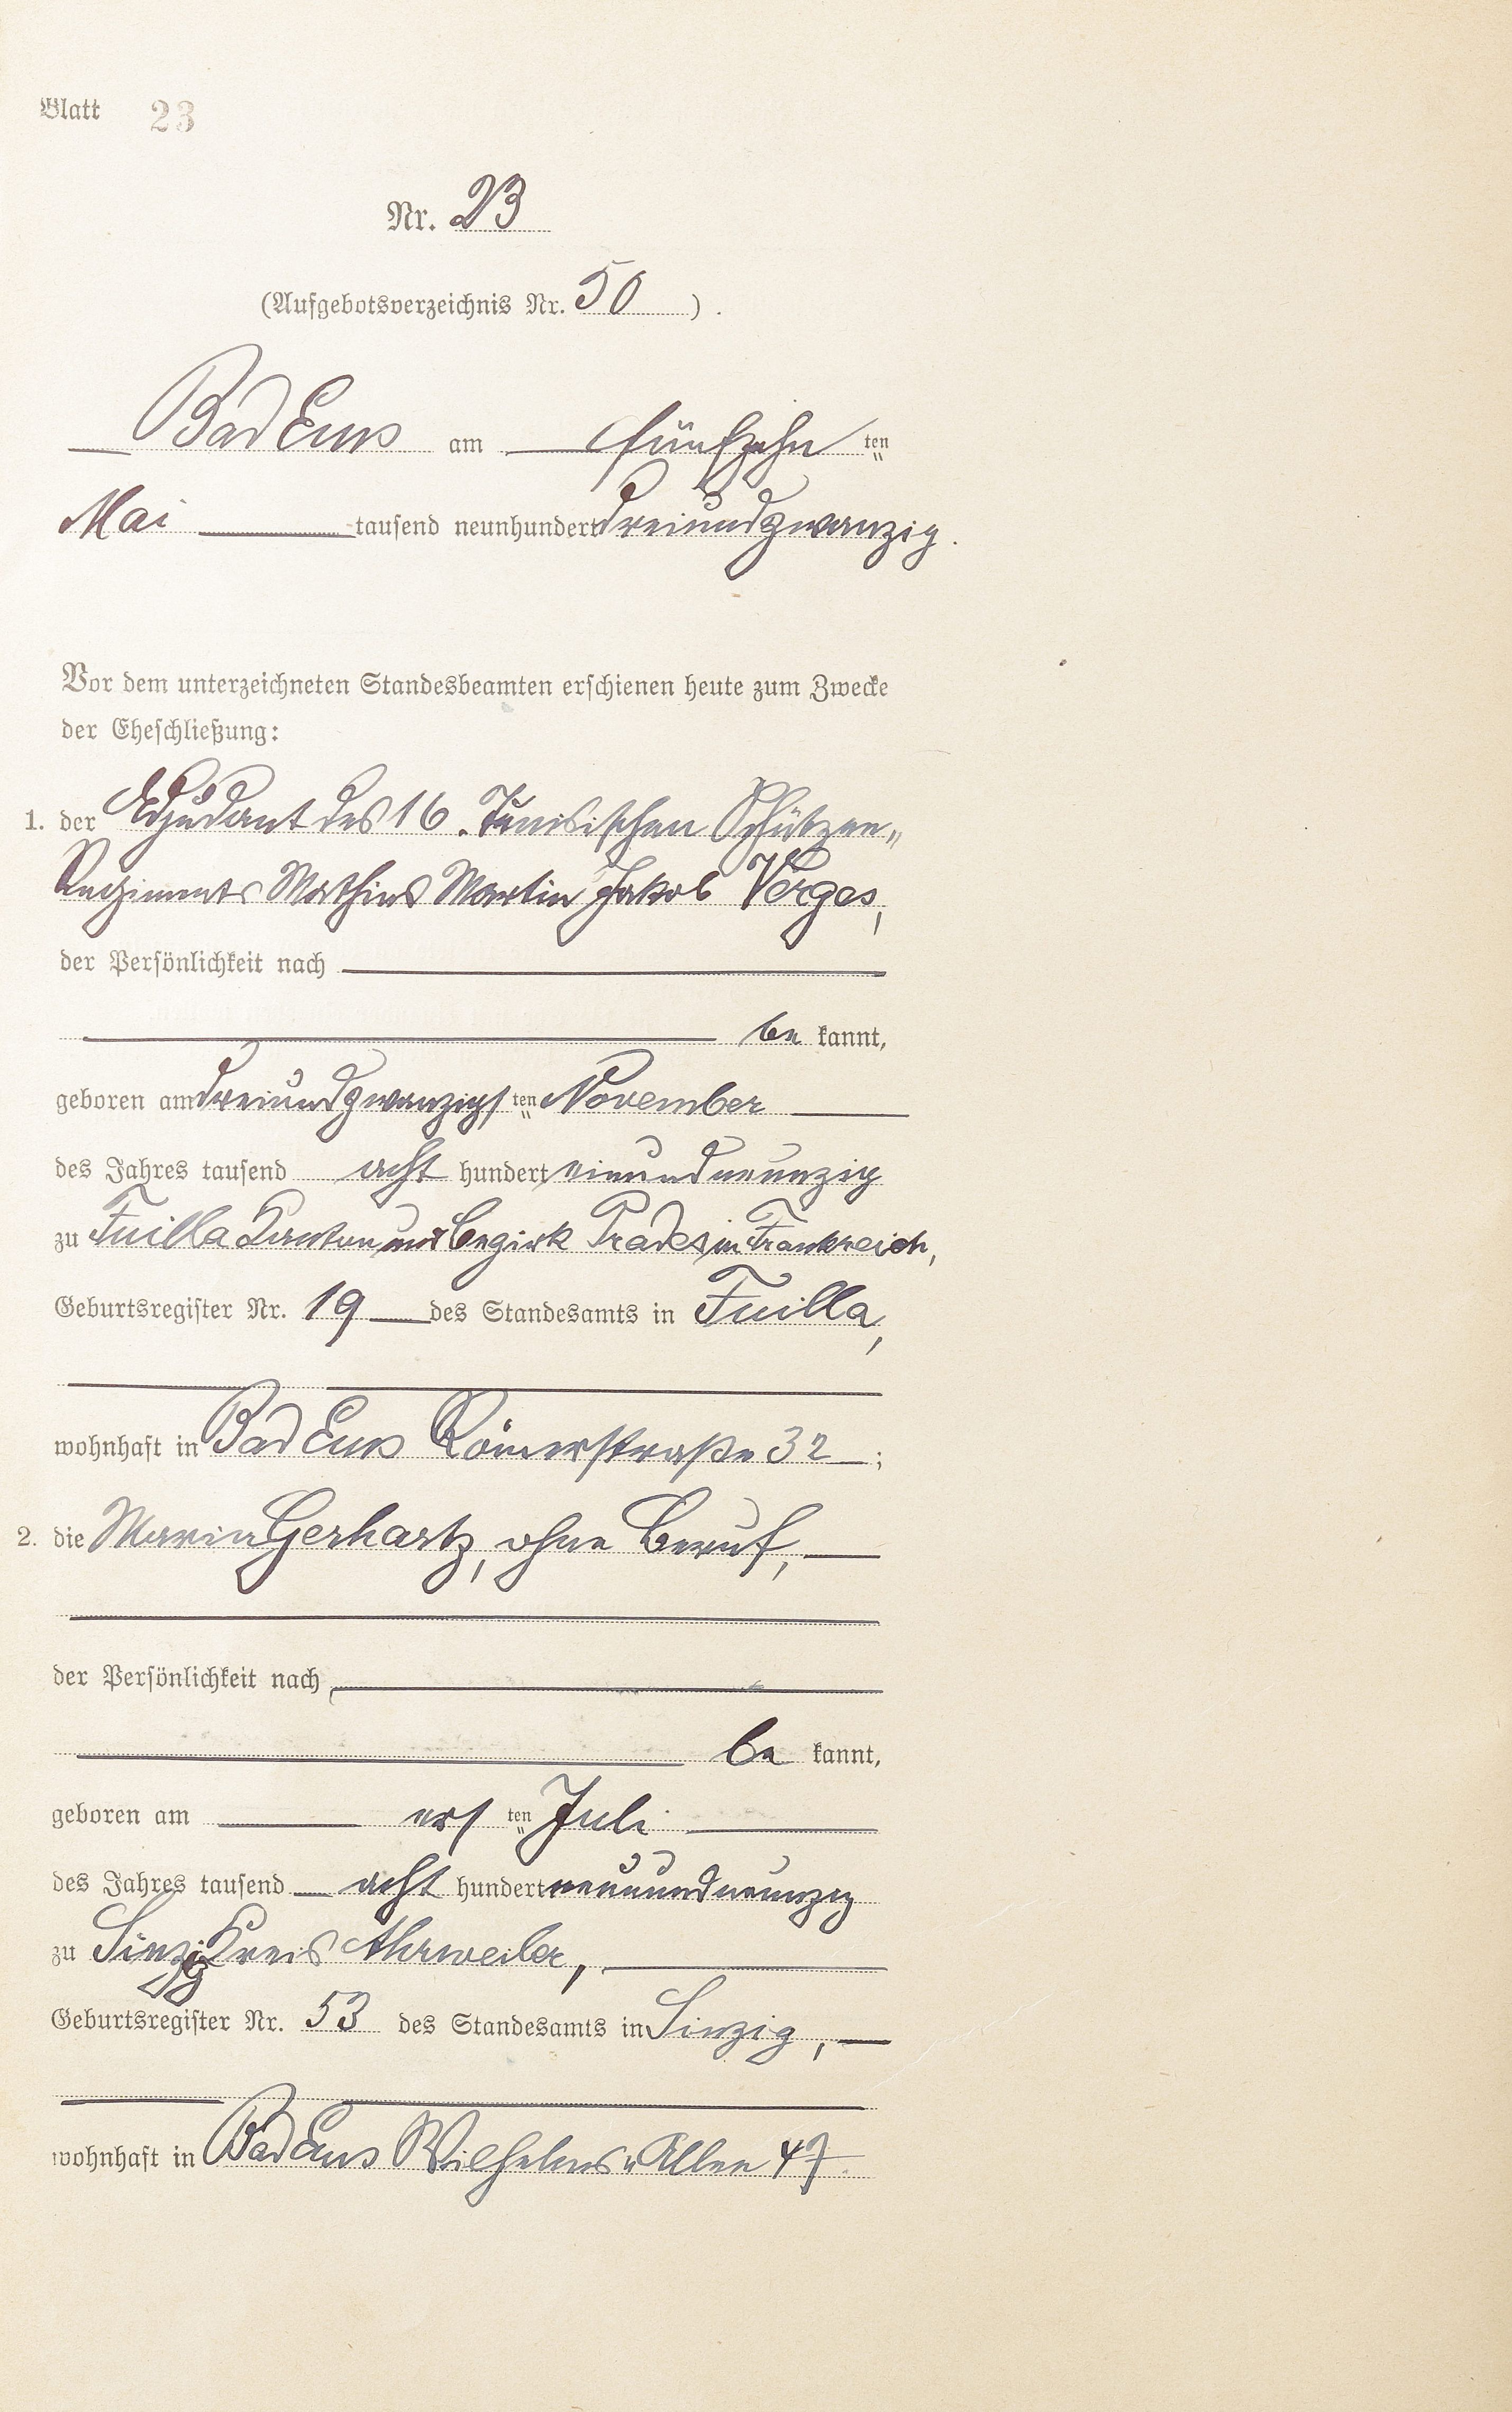 Blatt 23
Nr. 23
(Aufgebotsverzeichnis Nr. 50).
Bad Ems am fünfzehn ten
Mai tausend neunhundert dreiundzwanzig.
Vor dem unterzeichneten Standesbeamten erschienen heute zum Zwecke
der Eheschließung:
1. der Adjudant des 16. Tunisischen Schützen-
Regiments Mathias Martin Jakob Verges,
der Persönlichkeit nach
be kannt,
geboren am dreiundzwanzigs ten November
des Jahres tausend acht hundert einundneunzig
zu Fuilla Kanton und Bezirk Prades in Frankreich,
Geburtsregister Nr. 19 des Standesamts in Fuilla,
wohnhaft in Bad Ems Römerstraße 32;
2. die Maria Gerhartz, ohne Beruf,
der Persönlichkeit nach
be kannt,
geboren am ers ten Juli
des Jahres tausend acht hundert neunundneunzig
zu Sinzig Kreis Ahrweiler,
Geburtsregister Nr. 53 des Standesamts in Sinzig,
wohnhaft in Bad Ems Wilhelms-Allee 47.